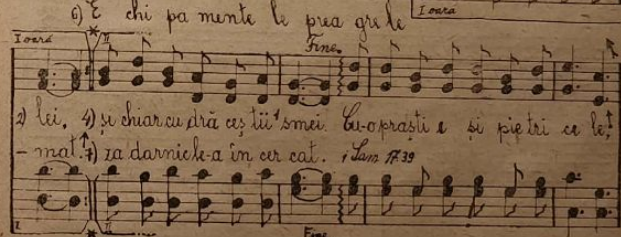 6) E chi pa mente le prea gre le
I oară
I oară II Fine.
2) lei, 4) și chiar cu dră ceș tii smei. Cu-o praștie și pietri ce le!
- mat. 7) za darnic le-a în cer cat. 1 Sam 17.39
I. II Fine